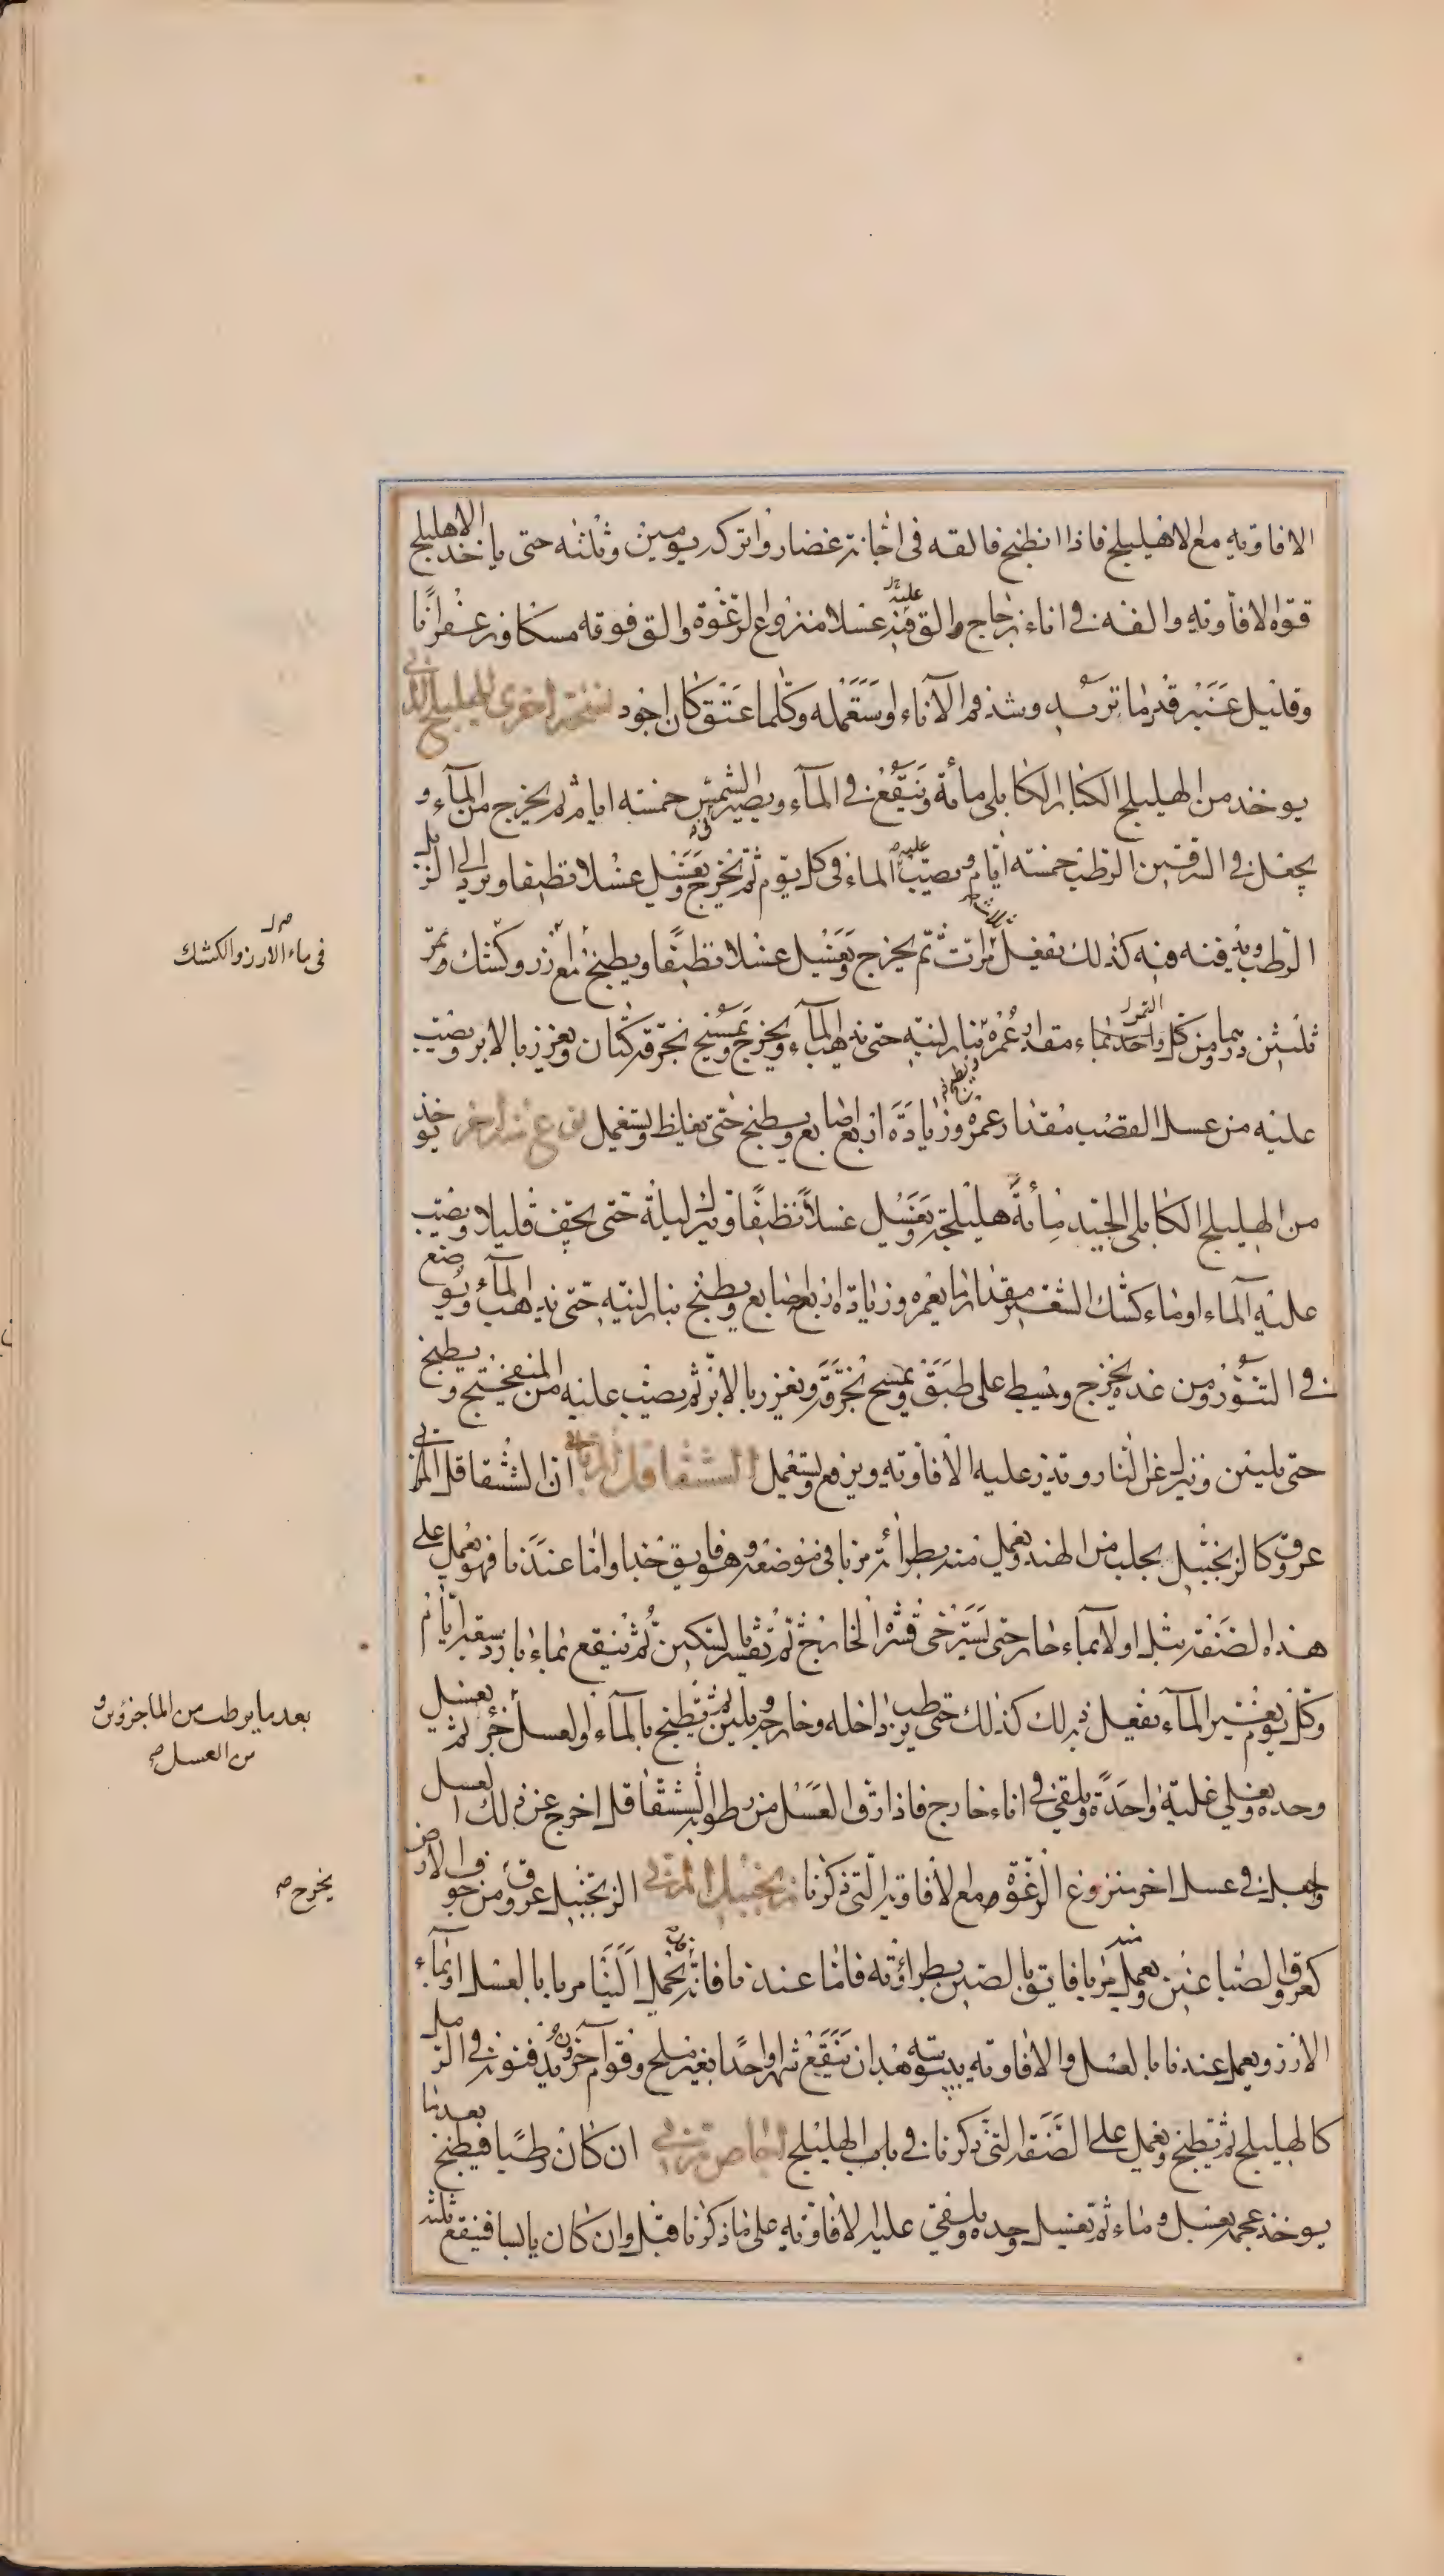 الافاويه مع الاهليلج فاذا انطبخ فالقه فى اجانة غضار واتركه يومين وثلثه حتى ياخذ الاهليلج
قوة الافاويه والقه فى اناء زجاج والق عليه عسلا منزوع الرغوة والق فوقه مسكا وزعفرانا
وقليل عنبر قدر ما تريد وشد فم الاناء واستعمله وكلما عتق كان اجود نسخة اخرى للهليلج المربى
يوخذ من الهليلج الكبار الكابلى مائة وينقع فى الماء ويصير فى الشمس خمسه ايام ثم يخرج من الماء و
يجعل فى السرقين الرطب خمسة ايام ويصب عليه الماء فى كل يوم ثم يخرج ويغسل غسلا نظيفا ويرد الى الرمل
الرطب ويدفنه فيه كذلك يفعل ثلاث مرات ثم يخرج ويغسل غسلا نظيفا ويطبخ مع ارز وكشك وتمر
ثلثين درهما من كل واحد بماء مقدار غمره بنار لينه حتى يذهب الماء ويخرج ويمسح بخرقة كتان ويغرز بالابر ويصب
عليه من عسل القصب مقدار غمره وزيادة اربع اصابع ويطبخ حتى يغلظ ويستعمل نوع منه اخر يوخذ
من الهليلج الكابلى الجيد مائة هليلجة ويغسل غسلا نظيفا ويترك ليلة حتى يجف قليلا ويصب
عليه الماء او ماء كشك الشعير مقدار ما يغمره وزيادة اربع اصابع ويطبخ بنار لينه حتى يذهب الماء ويوضع
فى التنور ومن غده يخرج ويبسط على طبق ويمسح بخرقة ويغرز بالابر ثم يصب عليه من الميفختج ويطبخ
حتى يلين وينزل عن النار ويذر عليه الافاويه ويرفع ويستعمل الششقاقل المربى ان الششقاقل المربى
عروق كالزنجبيل يجلب من الهند ويعمل منه بطرائه مربا فى موضعه وهو فايق جدا واما عندنا فهو يعمل على
هذه الصنعة يبل اولا بماء حار حتى يسترخى قشره الخارج ثم يقشر بالسكين ثم ينقع بماء بارد سبعة ايام
وكل يوم يغير الماء يفعل ذلك كذلك حتى يرطب داخله وخارجه ويلين ثم يطبخ بالماء والعسل جزء ثم يغسل
وحده ويغلى غلية واحدة ويلقى فى اناء خارج فاذا رق العسل من رطوبة الششقاقل اخرج عن ذلك العسل
واجعل فى عسل اخر منزوع الرغوة مع الافاويه التى ذكرنا زنجبيل المربى الزنجبيل عروق من جوف الارض
كعروق الصباغين ويعمل منه مربا فايق بالصين بطراوته فاما عندنا فانه يحمل الينا مربا بالعسل او بماء
الارز ويعمل عندنا بالعسل والافاويه يبيسته هذا ان ينقع شهرا واحدا بغير ملح وقوم آخرون يدفنونه فى الرمل
كالهليلج ثم يطبخ ويعمل على الصنعة التى ذكرنا فى باب الهليلج اجاص مربى ان كان رطبا فيطبخ بعدما
يوخذ عجمه بعسل وماء ثم بعسل وحده ويلقى عليه الافاويه على ما ذكرنا قبل وان كان يابسا فينقع ثلثه
فى ماء الارز والكشك
بعد ما يرطب من الما جزؤين و
من العسل صح
يخرج صح